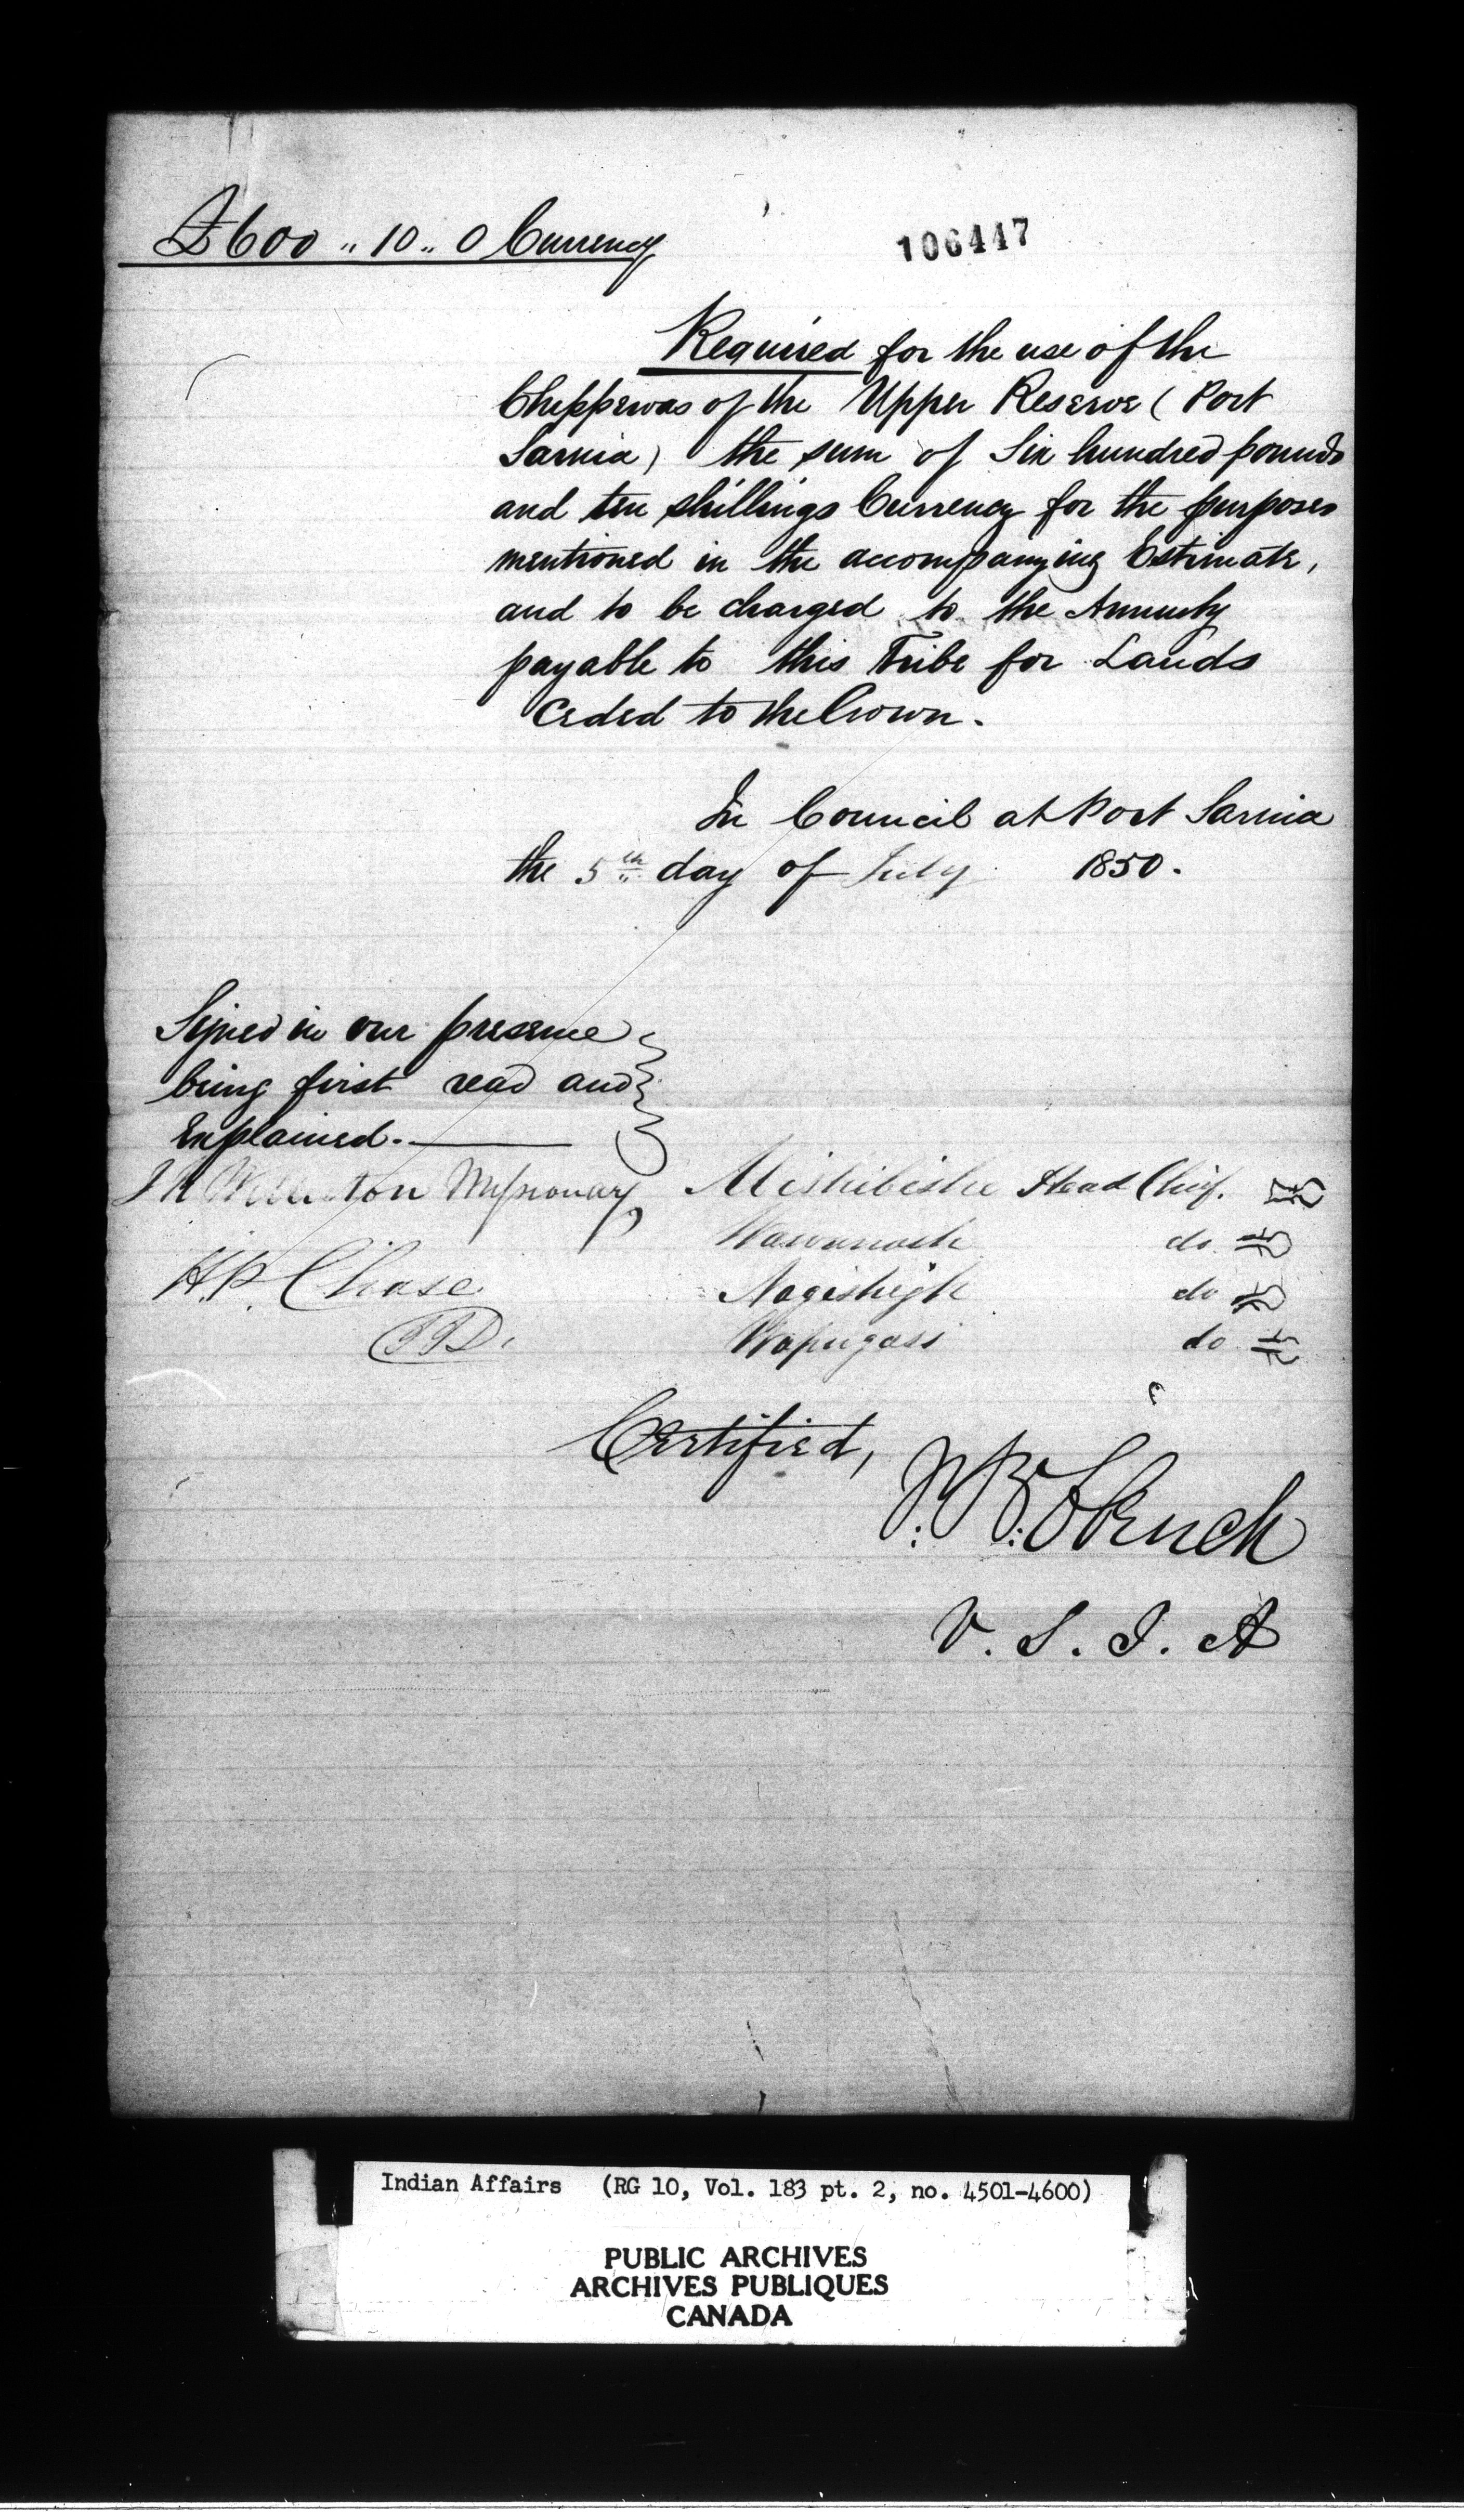 £600 ,, 10 ,, 0 Currency
106447
Required for the use of the
Chippewas of the Upper Reserve (Port
Sarnia) the sum of Six hundred pounds
and ten shillings Currency for the purposes
mentioned in the accompanying Estimate,
and to be charged to the Annuity
payable to this Tribe for Lands
Ceded to the Crown.
In Council at Port Sarnia
the 5th day of July 1850.
Signed in our presence
being first read and
Explained.
Missionary
Mishibishe Head Chief.
Wawanosh do
H.P. Chase
Nageshigk do
Wapugasi do
Certified,
J. B. Clench
V. S. I. A
Indian Affairs (RG 10, Vol. 183 pt. 2, no. 4501-4600)
PUBLIC ARCHIVES
ARCHIVES PUBLIQUES
CANADA